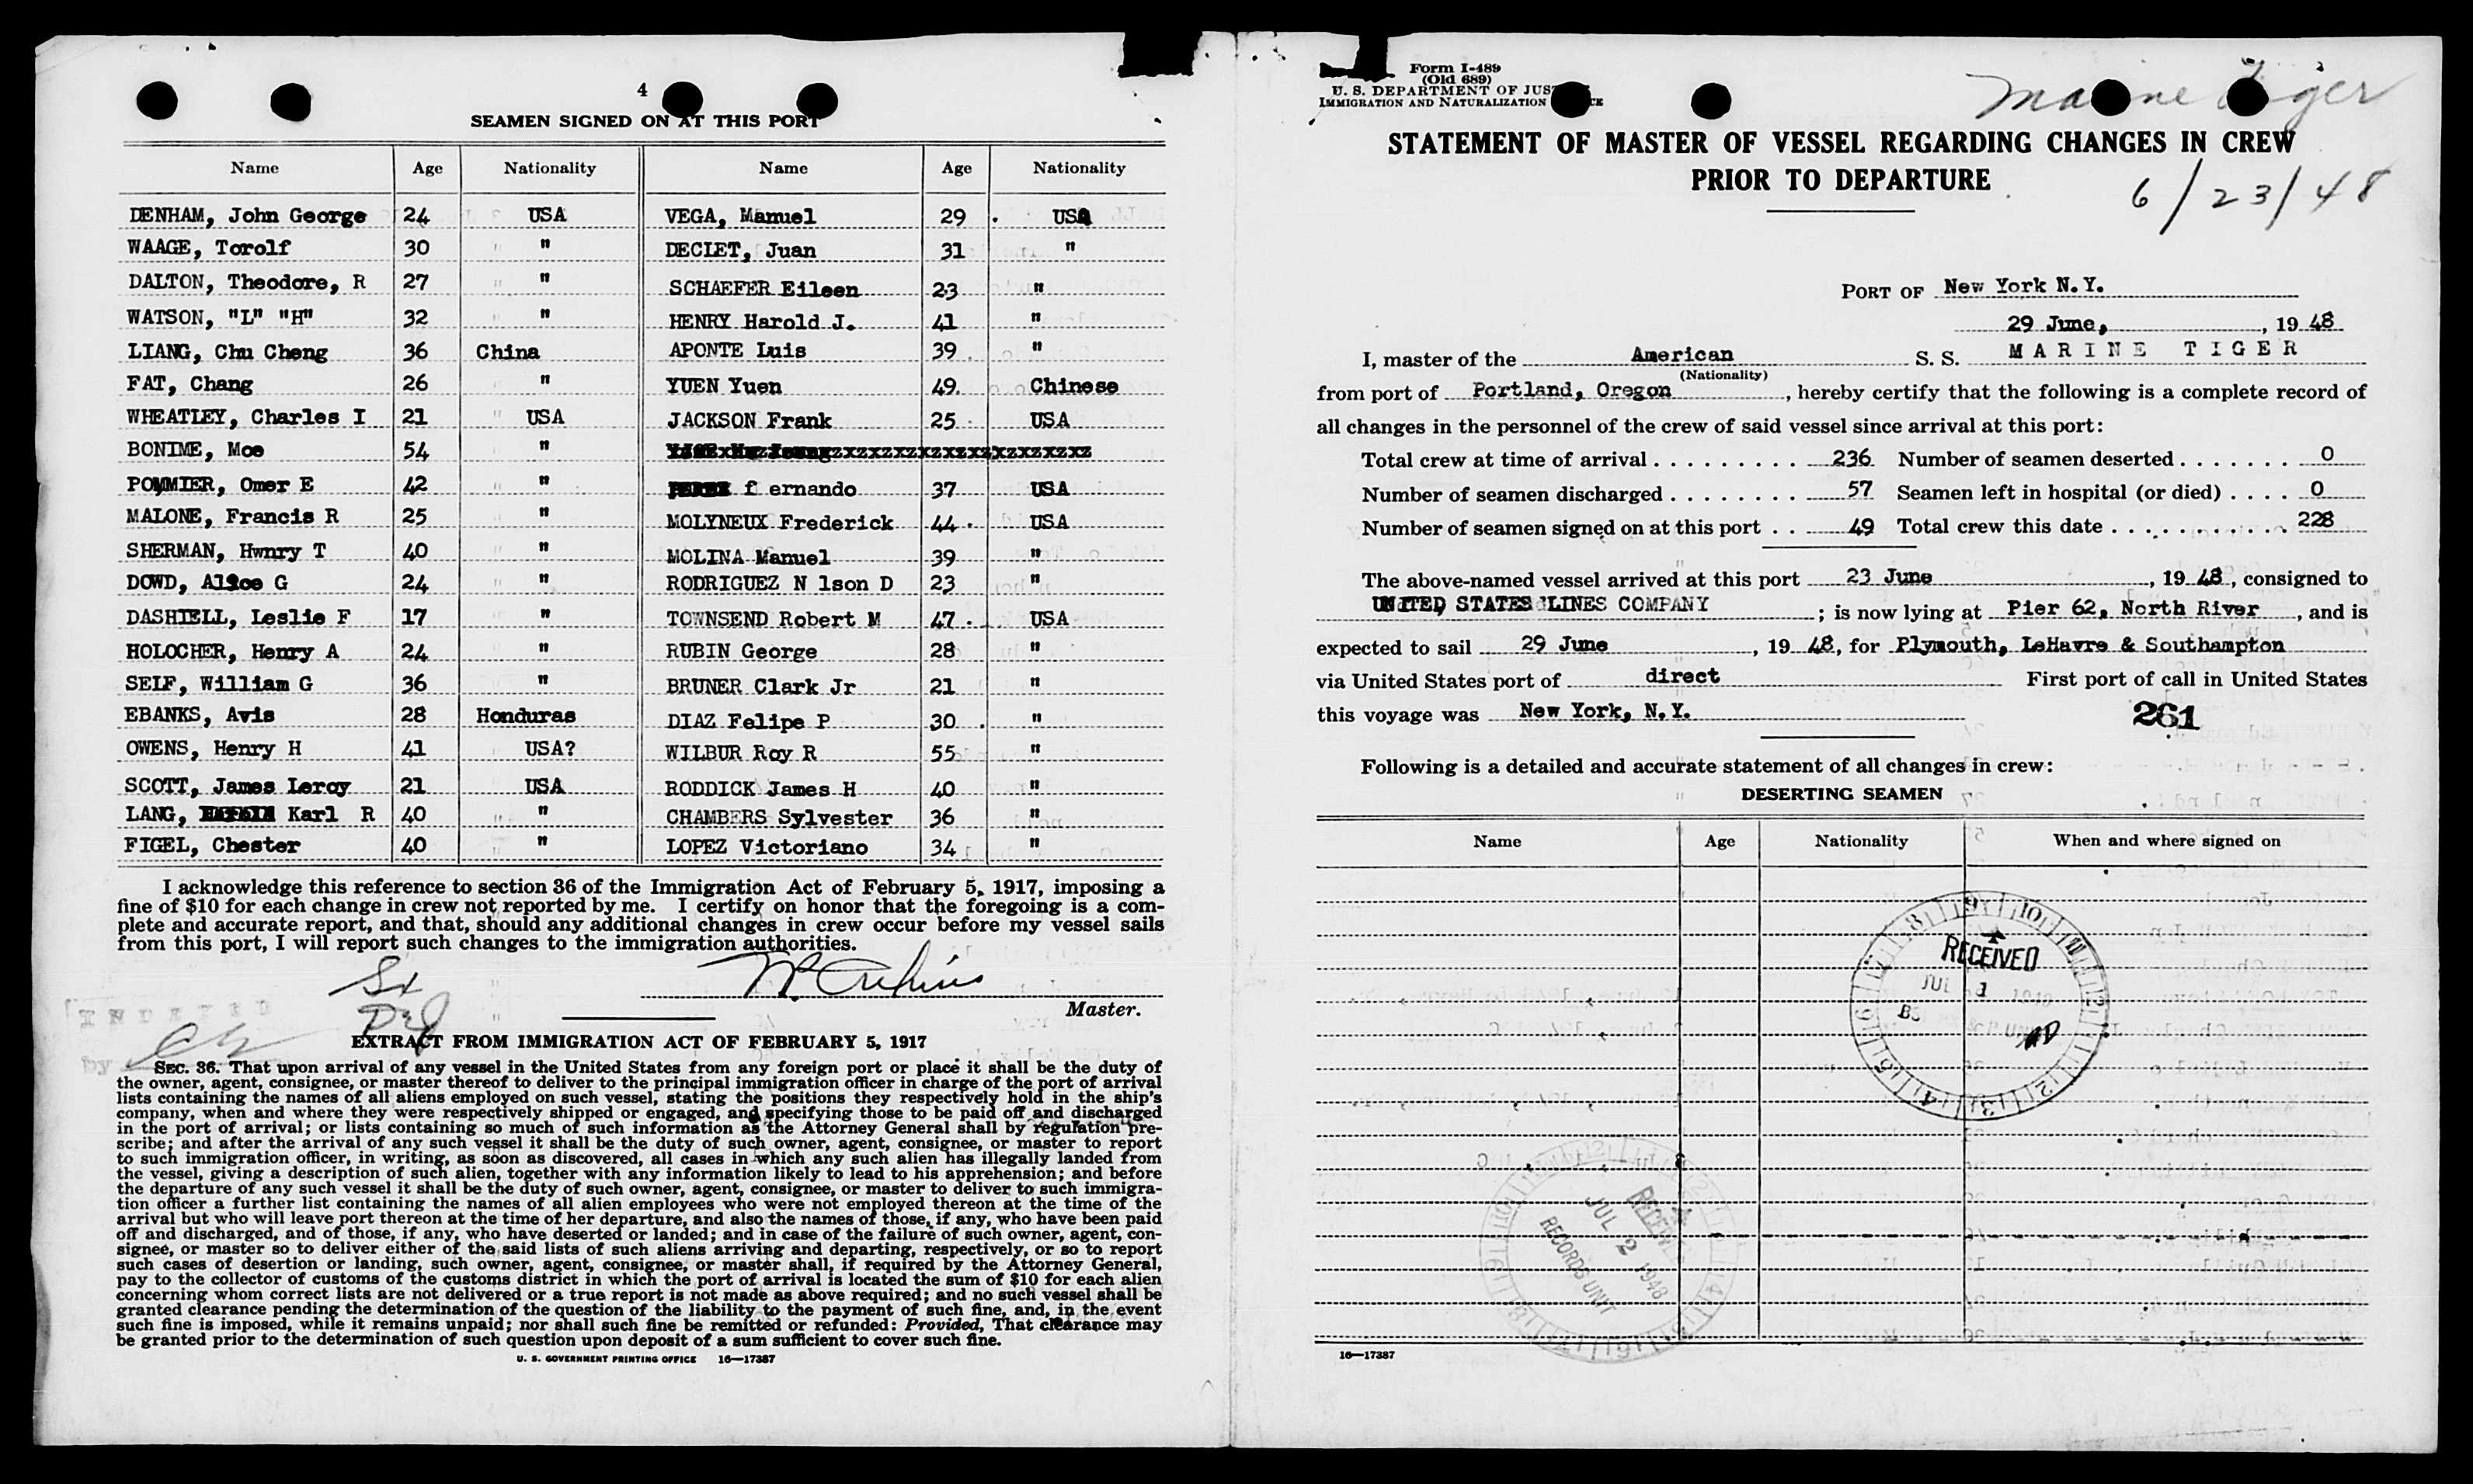 4
SEAMEN SIGNED ON AT THIS PORT
Name Age Nationality Name Age Nationality
DENHAM, John George 24 USA VEGA, Manuel 29 USA
WAAGE, Torolf 30 " DECLET, Juan 31 "
DALTON, Theodore, R 27 " SCHAEFER Eileen 23 "
WATSON, "L" "H" 32 " HENRY Harold J. 41 "
LIANG, Chu Cheng 36 China APONTE Luis 39 "
FAT, Chang 26 " YUEN Yuen 49. Chinese
WHEATLEY, Charles I 21 USA JACKSON Frank 25 USA
BONIME, Moe 54 "
POMMIER, Omer E 42 " f ernando 37 USA
MALONE, Francis R 25 " MOLYNEUX Frederick 44 USA
SHERMAN, Hwnry T 40 " MOLINA Manuel 39 "
DOWD, Alice G 24 " RODRIGUEZ N lson D 23 "
DASHIELL, Leslie F 17 " TOWNSEND Robert M 47 USA
HOLOCHER, Henry A 24 " RUBIN George 28 "
SELF, William G 36 " BRUNER Clark Jr 21 "
EBANKS, Avis 28 Honduras DIAZ Felipe P 30 "
OWENS, Henry H 41 USA? WILBUR Roy R 55 "
SCOTT, James Leroy 21 USA RODDICK James H 40 "
LANG, Karl R 40 " CHAMBERS Sylvester 36 "
FIGEL, Chester 40 " LOPEZ Victoriano 34 "
I acknowledge this reference to section 36 of the Immigration Act of February 5, 1917, imposing a
fine of $10 for each change in crew not reported by me. I certify on honor that the foregoing is a com-
plete and accurate report, and that, should any additional changes in crew occur before my vessel sails
from this port, I will report such changes to the immigration authorities.
Master.
EXTRACT FROM IMMIGRATION ACT OF FEBRUARY 5, 1917
by
SEC. 36. That upon arrival of any vessel in the United States from any foreign port or place it shall be the duty of
the owner, agent, consignee, or master thereof to deliver to the principal immigration officer in charge of the port of arrival
lists containing the names of all aliens employed on such vessel, stating the positions they respectively hold in the ship's
company, when and where they were respectively shipped or engaged, and specifying those to be paid off and discharged
in the port of arrival; or lists containing so much of such information as the Attorney General shall by regulation pre-
scribe; and after the arrival of any such vessel it shall be the duty of such owner, agent, consignee, or master to report
to such immigration officer, in writing, as soon as discovered, all cases in which any such alien has illegally landed from
the vessel, giving a description of such alien, together with any information likely to lead to his apprehension; and before
the departure of any such vessel it shall be the duty of such owner, agent, consignee, or master to deliver to such immigra-
tion officer a further list containing the names of all alien employees who were not employed thereon at the time of the
arrival but who will leave port thereon at the time of her departure, and also the names of those, if any, who have been paid
off and discharged, and of those, if any, who have deserted or landed; and in case of the failure of such owner, agent, con-
signee, or master so to deliver either of the said lists of such aliens arriving and departing, respectively, or so to report
such cases of desertion or landing, such owner, agent, consignee, or master shall, if required by the Attorney General,
pay to the collector of customs of the customs district in which the port of arrival is located the sum of $10 for each alien
concerning whom correct lists are not delivered or a true report is not made as above required; and no such vessel shall be
granted clearance pending the determination of the question of the liability to the payment of such fine, and, in the event
such fine is imposed, while it remains unpaid; nor shall such fine be remitted or refunded: Provided, That clearance may
be granted prior to the determination of such question upon deposit of a sum sufficient to cover such fine.
U. S. GOVERNMENT PRINTING OFFICE 16—17387
Form I-489
(Old 689)
U. S. DEPARTMENT OF JUS
IMMIGRATION AND NATURALIZATION CE
Ma ne Tiger
STATEMENT OF MASTER OF VESSEL REGARDING CHANGES IN CREW
PRIOR TO DEPARTURE
6/23/48
PORT OF New York N.Y.
29 June, , 19 48
I, master of the American S. S. MARINE TIGER
(Nationality)
from port of Portland, Oregon , hereby certify that the following is a complete record of
all changes in the personnel of the crew of said vessel since arrival at this port:
Total crew at time of arrival . . . . . . . . . . 236 Number of seamen deserted . . . . . . . 0
Number of seamen discharged . . . . . . . . 57 Seamen left in hospital (or died) . . . . 0
Number of seamen signed on at this port . . 49 Total crew this date . . . . . . . . . . . 228
The above-named vessel arrived at this port 23 June , 19 48 , consigned to
UNITED STATES LINES COMPANY ; is now lying at Pier 62, North River , and is
expected to sail 29 June , 19 48, for Plymouth, LeHavre & Southampton
via United States port of direct First port of call in United States
this voyage was New York, N.Y. 261
Following is a detailed and accurate statement of all changes in crew:
DESERTING SEAMEN
Name Age Nationality When and where signed on
RECEIVED
JUL 1
RECEIVED
JUL 2 1948
RECORDS UNIT
16—17387